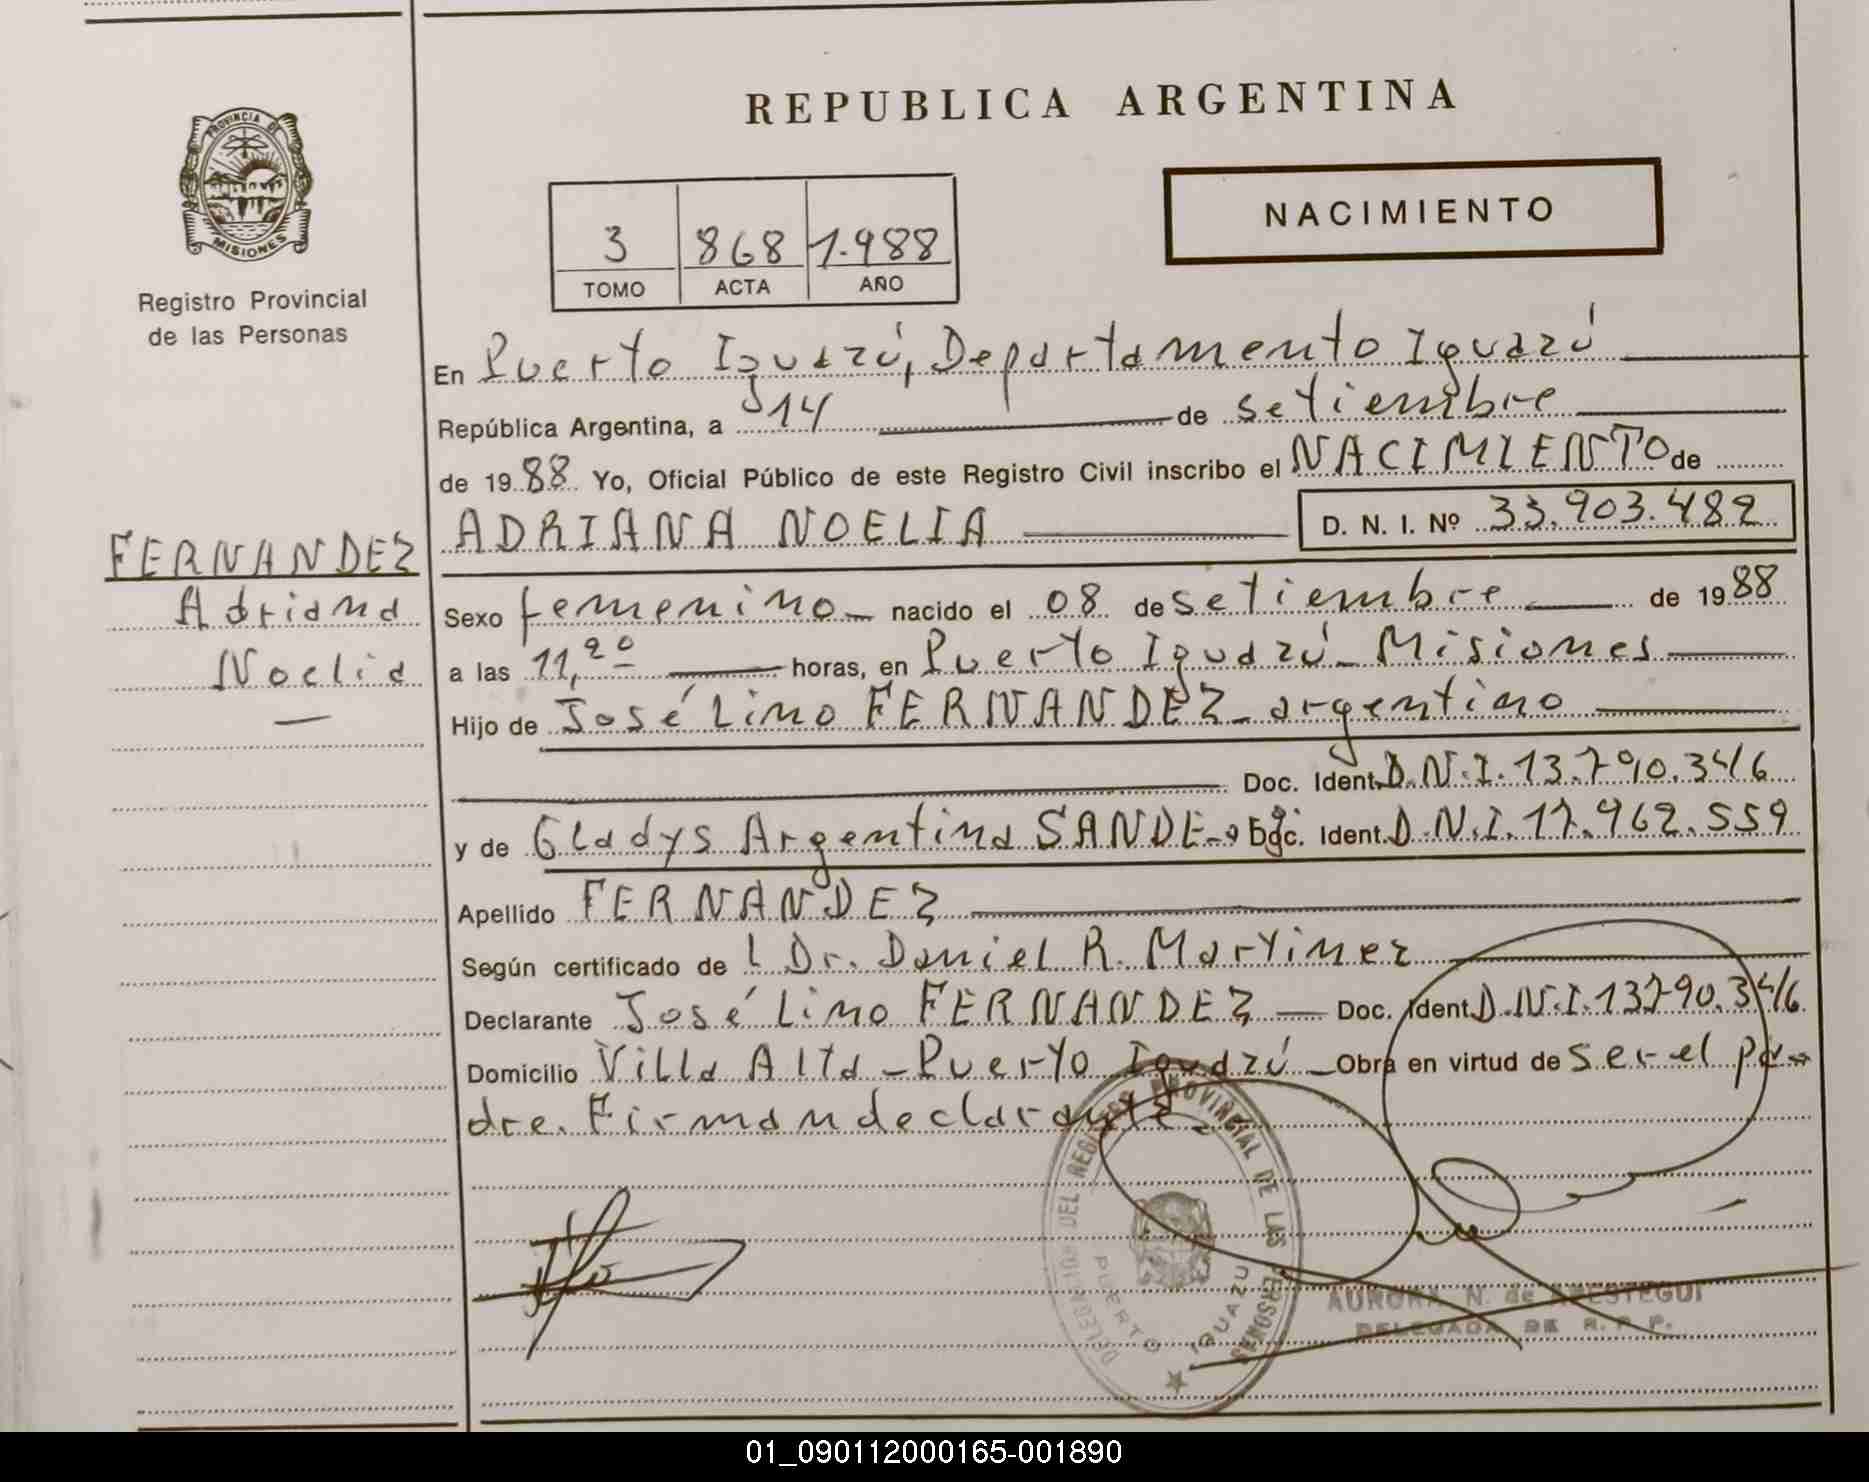 REPUBLICA ARGENTINA
PROVINCIA DE
MISIONES
Registro Provincial
de las Personas
NACIMIENTO
3 868 1.988
TOMO ACTA AÑO
En Puerto Iguazú, Departamento Iguazú
República Argentina, a 14 de setiembre
de 1988 Yo, Oficial Público de este Registro Civil inscribo el NACIMIENTO de
ADRIANA NOELIA D. N. I. Nº 33.903.482
FERNANDEZ
Adriana
Noelia
Sexo femenino nacido el 08 de setiembre de 1988
a las 11,20 horas, en Puerto Iguazú - Misiones
Hijo de José Lino FERNANDEZ - argentino
Doc. Ident. D.N.I. 13.790.346
y de Gladys Argentina SANDE - Doc. Ident. D.N.I. 17.962.559
Apellido FERNANDEZ
Según certificado de l Dr. Daniel R. Martinez
Declarante José Lino FERNANDEZ Doc. Ident. D.N.I. 13790.346
Domicilio Villa Alta - Puerto Iguazú - Obra en virtud de ser el pa-
dre. Firman declarante
DELEGACION DEL REGISTRO PROVINCIAL DE LAS PERSONAS
PUERTO IGUAZU
AURORA N. de
DELEGADA DE R. P. P.
01_090112000165-001890